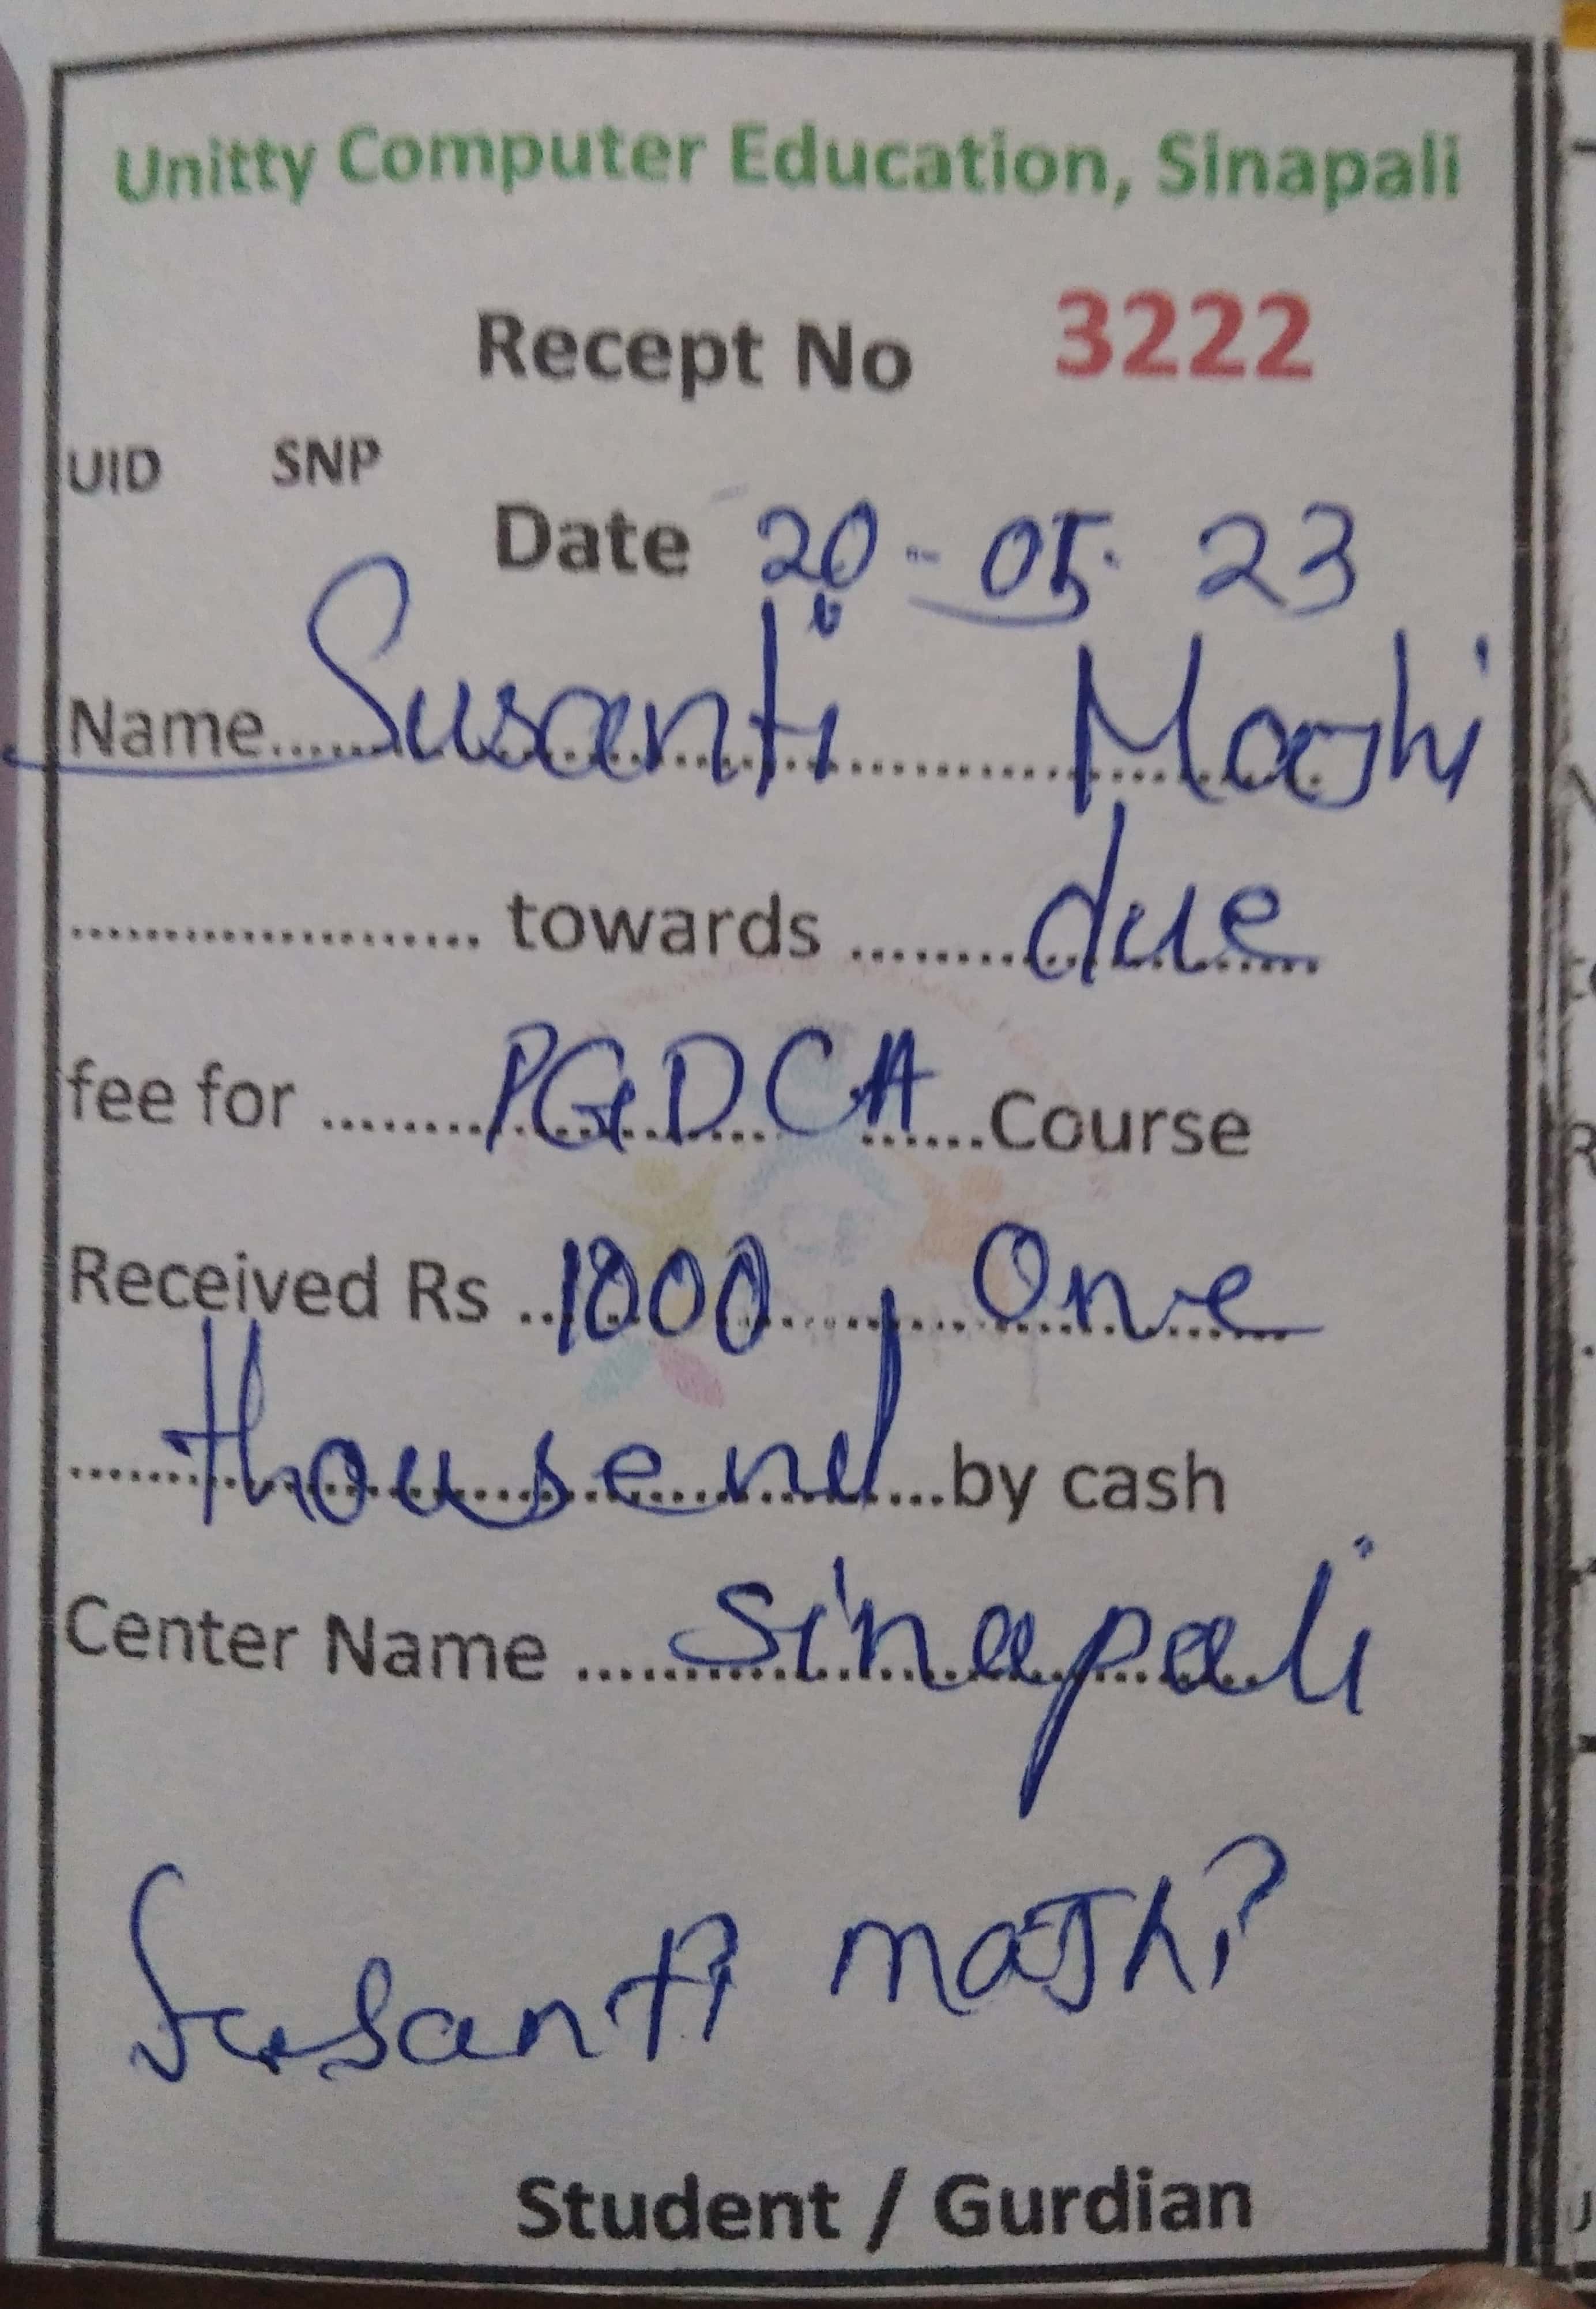 Unitty Computer Education, Sinapali
Recept No 3222
UID SNP
Date 20-05-23
Name......Susanti Majhi
..................... towards ........due......
fee for ........PGDCA......Course
Received Rs ..1000, One
........thousend....by cash
Center Name ......Sinapali
Susanti majhi
Student / Gurdian